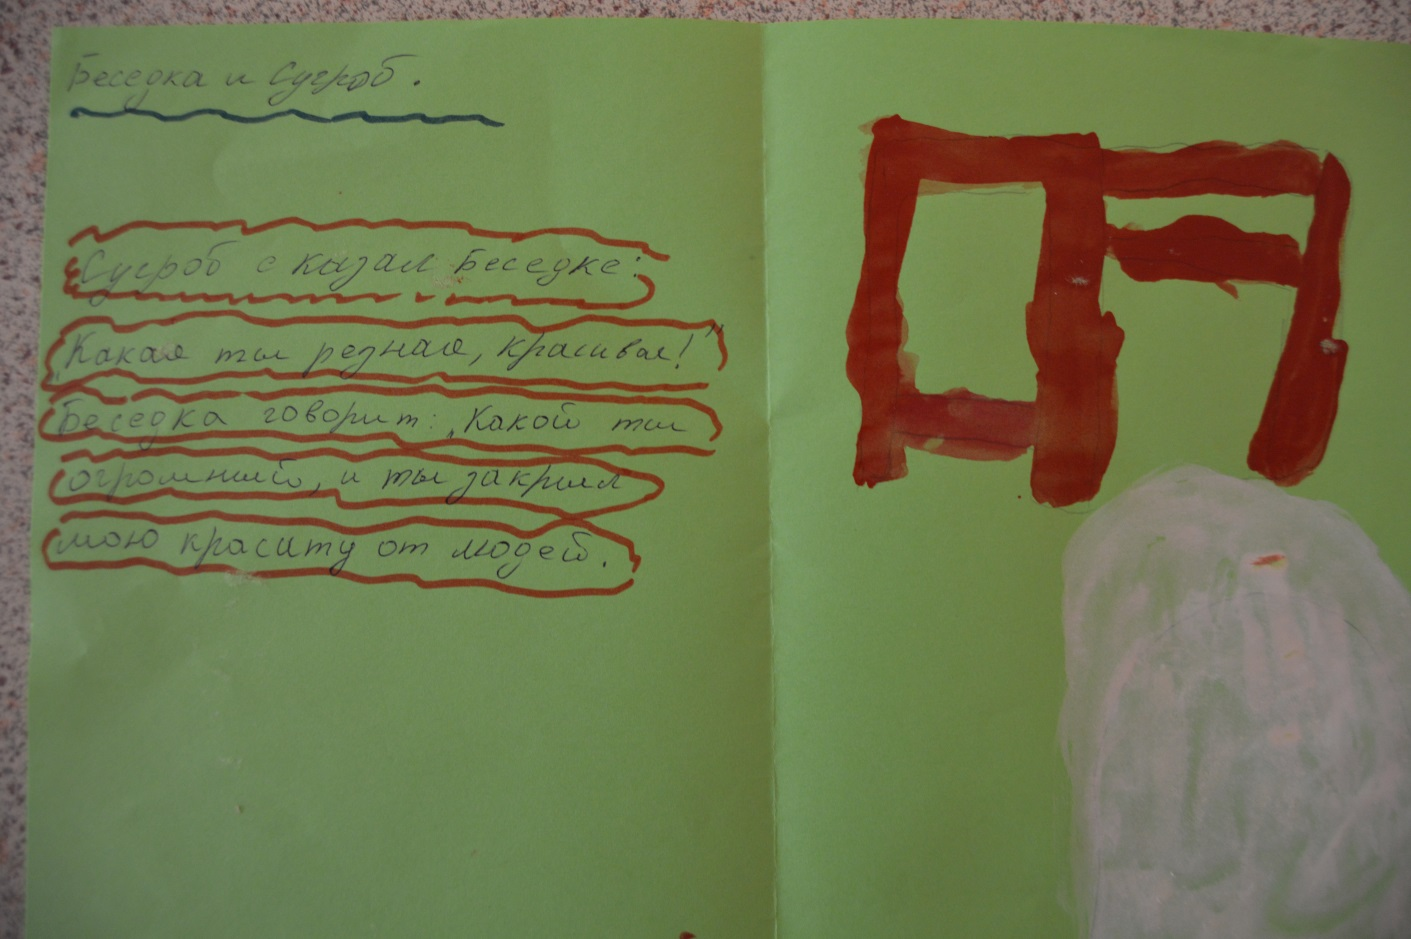 Беседка и Сугроб.
Сугроб сказал Беседке:
„Какая ты резная, красивая!"
Беседка говорит: „Какой ты
огромный, и ты закрыл
мою краситу от людей.